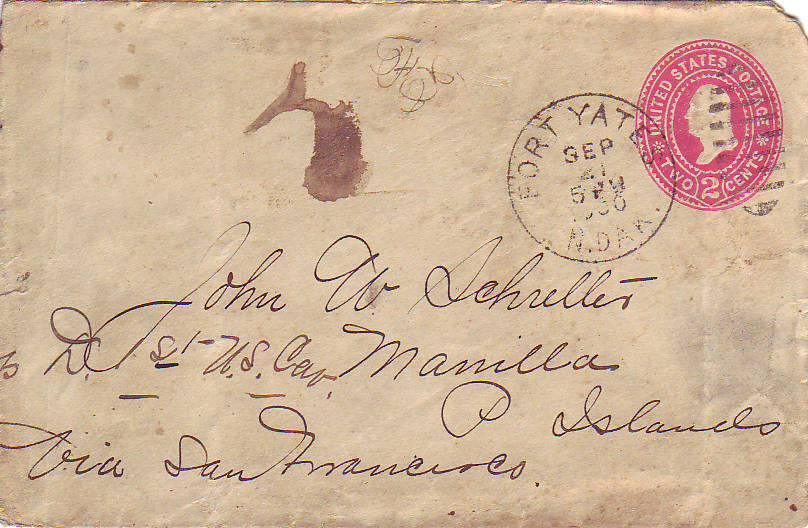 UNITED STATES POSTAGE
TWO 2 CENTS
FORT YATES
SEP
21
5 PM
N. DAK.
John W Schretter
D. 1st U.S. Cav. Manilla
P Islands
Via San Francisco.